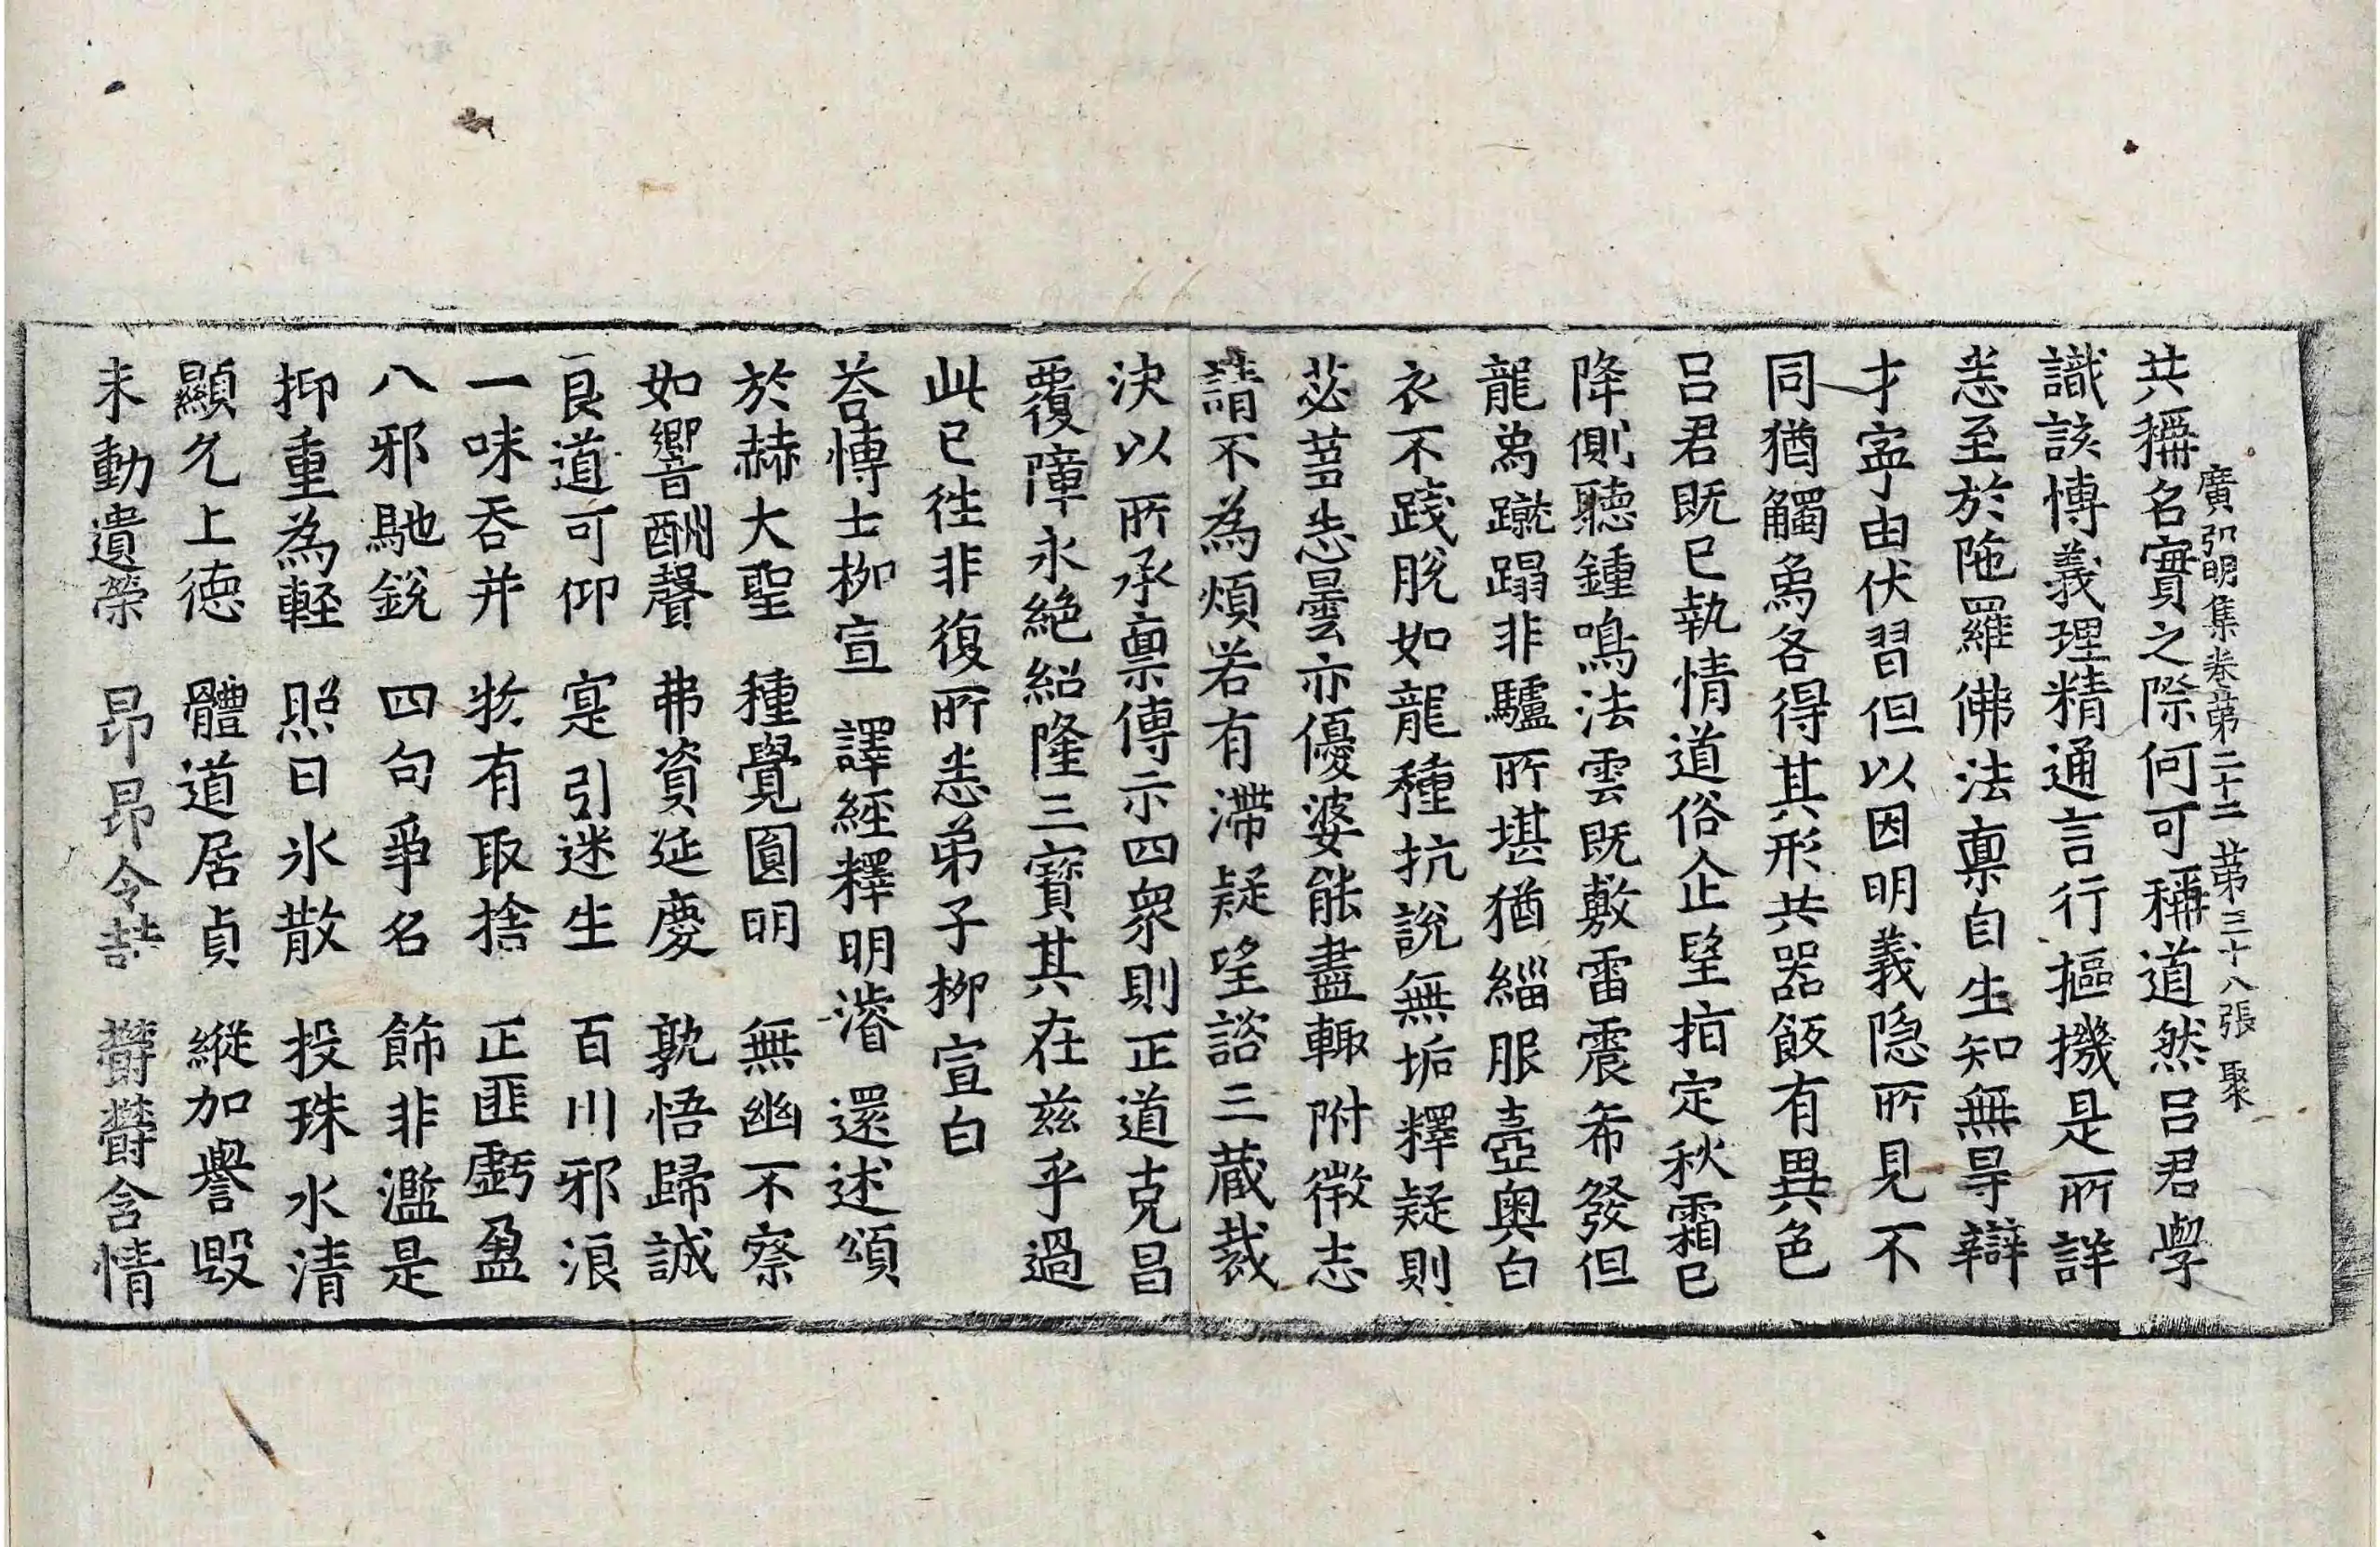 廣弘明集卷第二十二　第三十八張　聚
共稱名實之際何可稱道然呂君學
識該博義理精通言行摳機是所詳
悉至於陁羅佛法稟自生知無㝵辯
才寧由伏習但以因明義隱所見不
同猶觸爲各得其形共器飯有異色
呂君既已執情道俗企望指定秋霜已
降側聽鍾鳴法雲既敷雷震希發但
龍爲蹴蹋非驢所堪猶緇服壼奧白
衣不踐脫如龍種抗說無垢釋疑則
苾蒭悉曇亦優婆能盡輙附微志
請不為煩若有滯疑望諮三藏裁
決以所承稟傳示四衆則正道克昌
覆障永絕紹隆三寶其在茲乎過
此已徃非復所悉弟子柳宣白
荅博士柳宣　譯經釋明濬　還述頌
於赫大聖　種覺圓明　無幽不察
如響酬聲　弗資延慶　孰悟歸誠
良道可仰　寔引迷生　百川邪浪
一味吞并　物有取捨　正匪虧盈
八邪馳銳　四句爭名　飾非濫是
抑重為輕　照日氷散　投珠水清
顯允上德　體道居貞　縱加譽毀
未動遺榮　昂昂令喆　欝欝含情